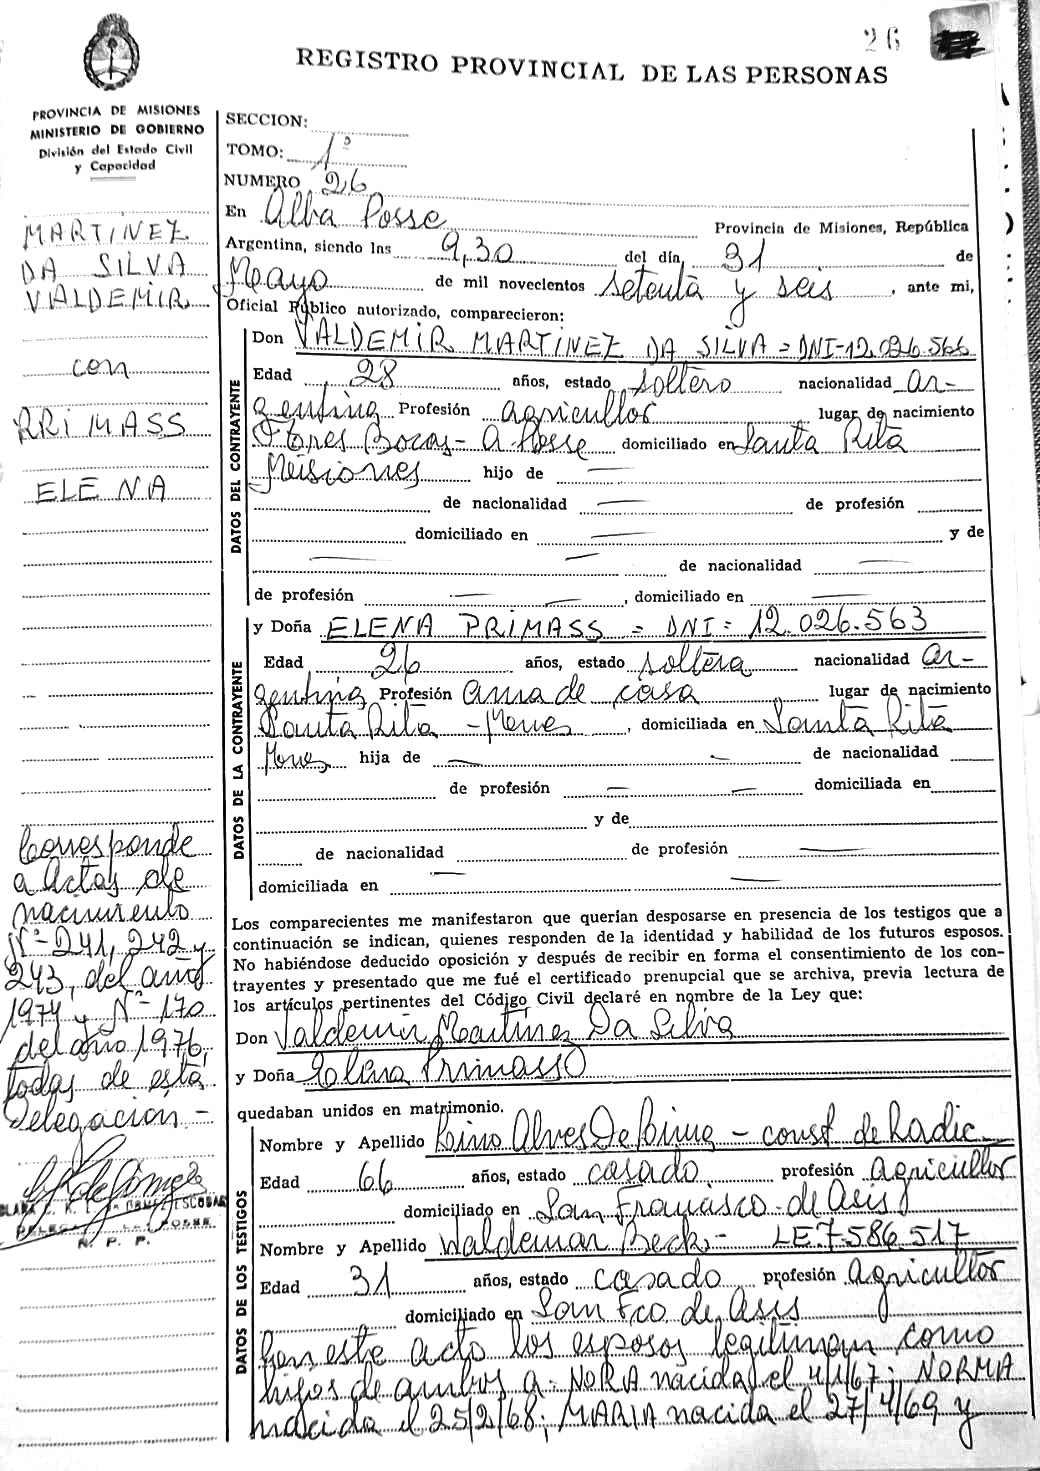 26
REGISTRO PROVINCIAL DE LAS PERSONAS
PROVINCIA DE MISIONES
MINISTERIO DE GOBIERNO
División del Estado Civil
y Capacidad
MARTINEZ
DA SILVA
VALDEMIR
con
PRIMASS
ELENA
Corresponde
a Actas de
nacimiento
Nº 241, 242 y
243, del año
1974 y Nº 170
del año 1976,
todas de esta
Delegación -
SECCION:
TOMO: 1º
NUMERO 26
En Alba Posse Provincia de Misiones, República
Argentina, siendo las 9,30 del día 31 de
Mayo de mil novecientos setenta y seis, ante mi,
Oficial Público autorizado, comparecieron:
DATOS DEL CONTRAYENTE
Don VALDEMIR MARTINEZ DA SILVA = DNI-12.026.566
Edad 28 años, estado soltero nacionalidad ar-
gentina Profesión agricultor lugar de nacimiento
Bocas - A. Posse domiciliado en Santa Rita
Misiones hijo de
de nacionalidad de profesión
domiciliado en y de
de nacionalidad
de profesión , domiciliado en
DATOS DE LA CONTRAYENTE
y Doña ELENA PRIMASS = DNI = 12.026.563
Edad 26 años, estado soltera nacionalidad ar-
gentina Profesión ama de casa lugar de nacimiento
Santa Rita - Mnes, domiciliada en Santa Rita
Mnes hija de de nacionalidad
de profesión domiciliada en
y de
de nacionalidad de profesión
domiciliada en
Los comparecientes me manifestaron que querían desposarse en presencia de los testigos que a
continuación se indican, quienes responden de la identidad y habilidad de los futuros esposos.
No habiéndose deducido oposición y después de recibir en forma el consentimiento de los con-
trayentes y presentado que me fué el certificado prenupcial que se archiva, previa lectura de
los artículos pertinentes del Código Civil declaré en nombre de la Ley que:
Don Valdemir Martinez Da Silva
y Doña Elena Primass
quedaban unidos en matrimonio.
DATOS DE LOS TESTIGOS
Nombre y Apellido Lino Alves De Lima - const. de Radic.
Edad 66 años, estado casado profesión agricultor
domiciliado en San Francisco de Asis
Nombre y Apellido Waldemar Beck - LE 7.586.517
Edad 31 años, estado casado profesión agricultor
domiciliado en San Fco de Asis
En este acto los esposos legitiman como
hijos de ambos a: NORA nacida el 4/1/67; NORMA
nacida el 25/2/68; MARIA nacida el 27/4/69 y